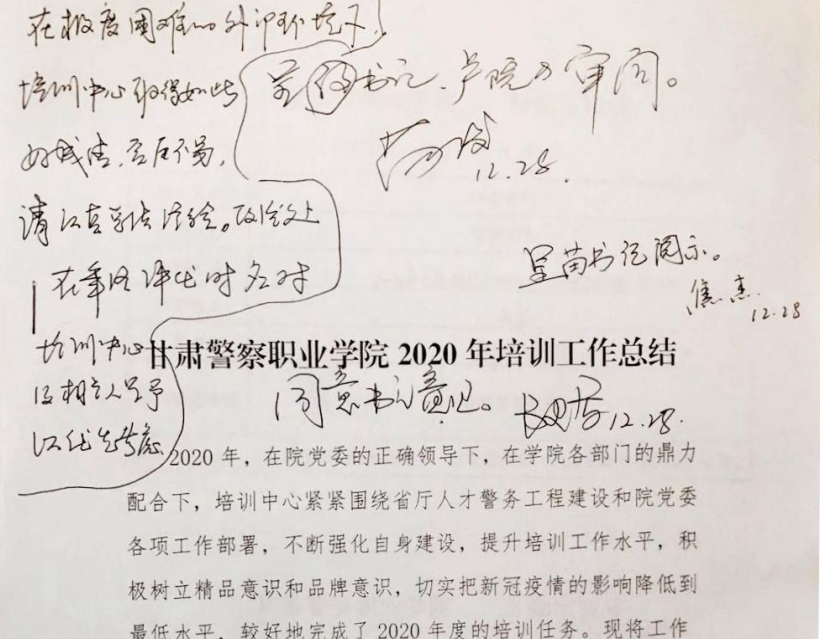 在极度困难的外部环境下，
培训中心取得如此
好成绩，实属不易，
请认真总结经验。政治处
在年终评比时名对
培训中心
及相关人员予
以优先考虑
呈苗书记、卢院长审阅。
12.28.
呈苗书记阅示。
焦杰
12.28
甘肃警察职业学院 2020 年培训工作总结
同意书记意见。
12.28.
2020 年，在院党委的正确领导下，在学院各部门的鼎力
配合下，培训中心紧紧围绕省厅人才警务工程建设和院党委
各项工作部署，不断强化自身建设，提升培训工作水平，积
极树立精品意识和品牌意识，切实把新冠疫情的影响降低到
最低水平，较好地完成了 2020 年度的培训任务。现将工作